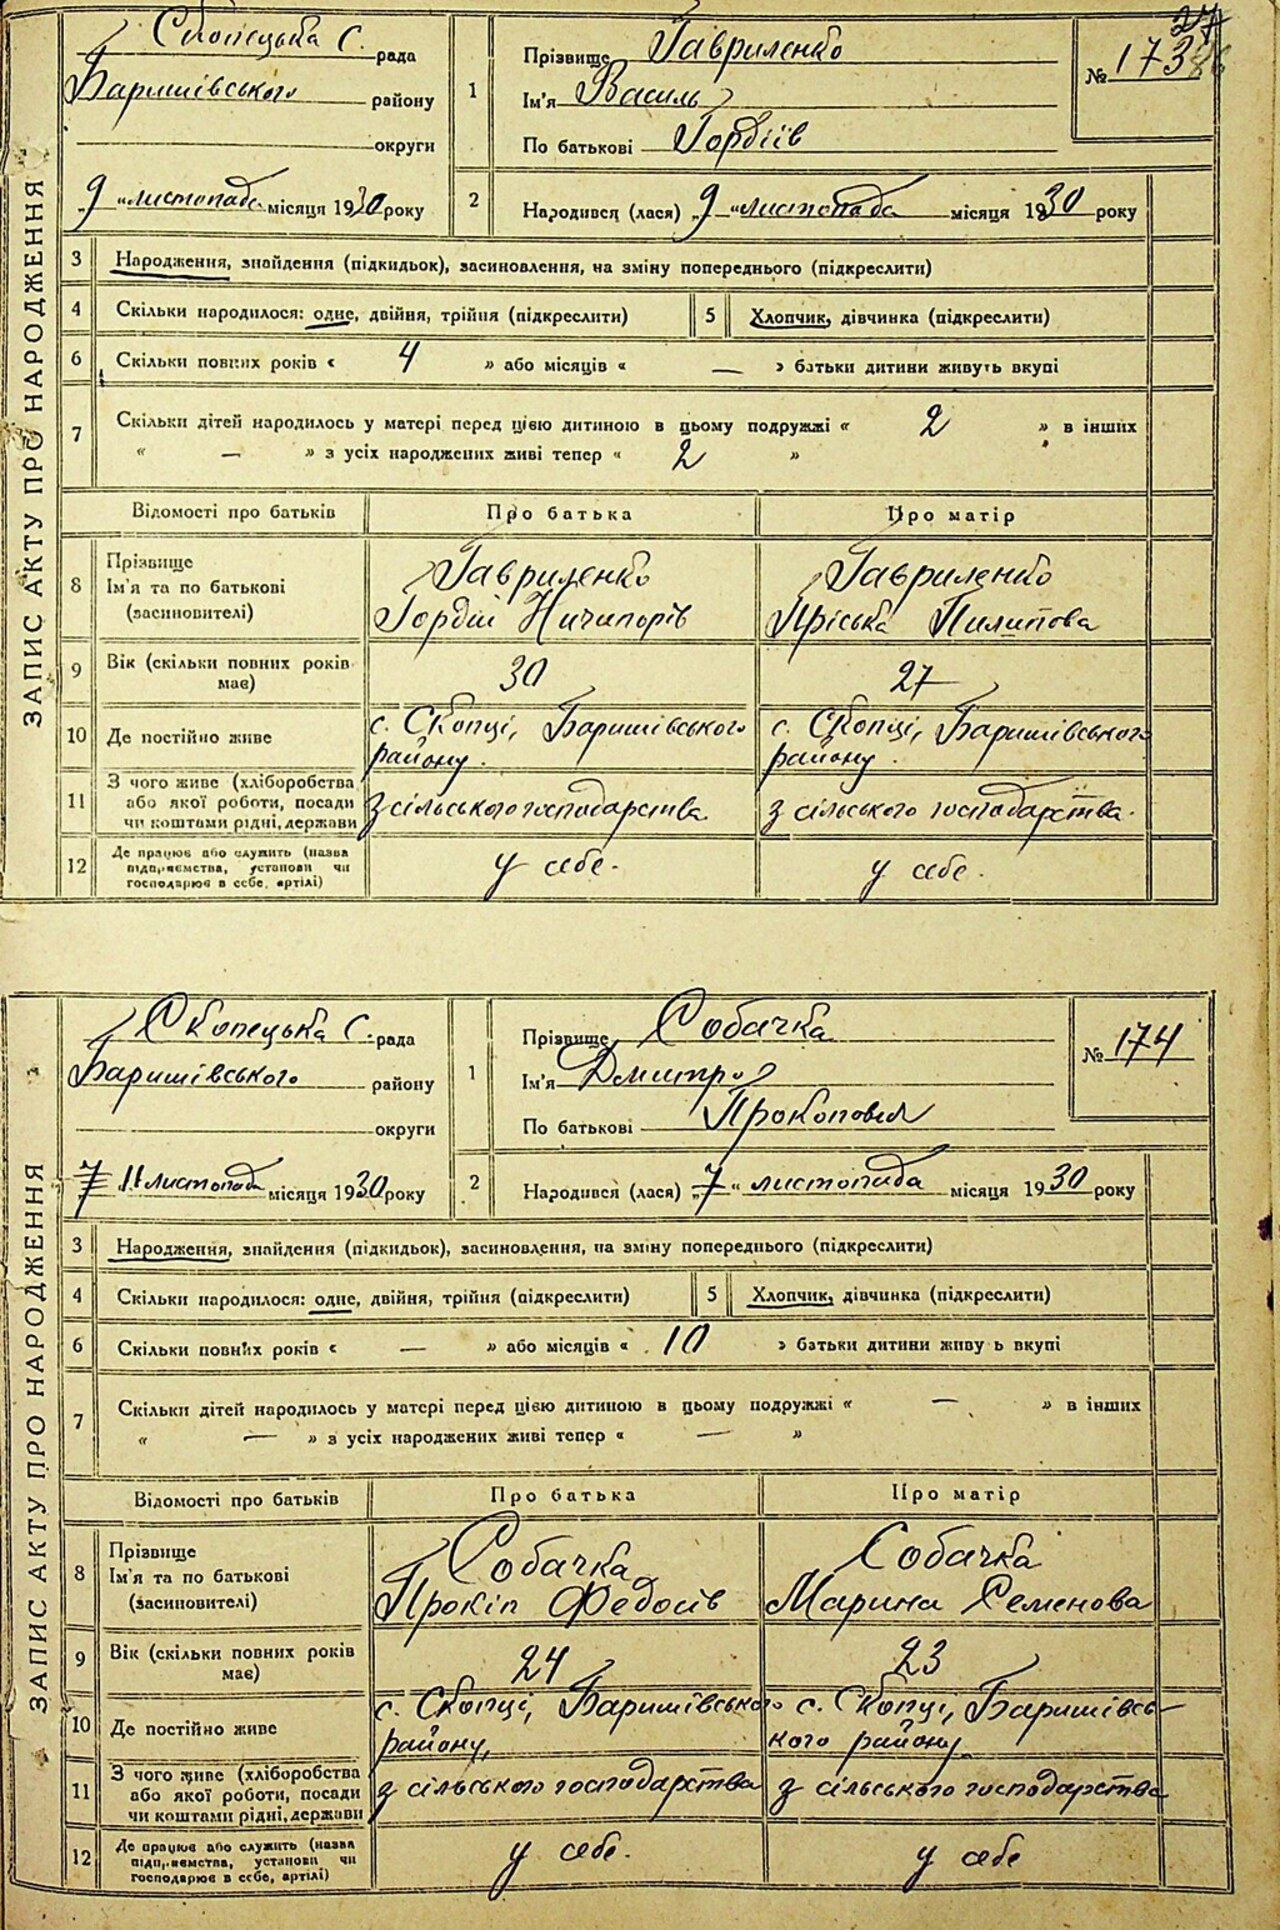 ЗАПИС АКТУ ПРО НАРОДЖЕННЯ
Скопецька С. рада
Баришівського району
округи
9 "листопада місяця 1930 року
1 Прізвище Гавриленко
Ім'я Василь
По батькові Гордіїв
№ 173
27
2 Народився (лася) „9 "листопада місяця 1930 року
3 Народження, знайдення (підкидьок), засиновлення, на зміну попереднього (підкреслити)
4 Скільки народилося: одне, двійня, трійня (підкреслити) 5 Хлопчик, дівчинка (підкреслити)
6 Скільки повних років « 4 » або місяців « — » батьки дитини живуть вкупі
7 Скільки дітей народилось у матері перед цією дитиною в цьому подружжі « 2 » в інших
« — » з усіх народжених живі тепер « 2 »
Відомості про батьків Про батька Про матір
8 Прізвище Гавриленко Гавриленко
Ім'я та по батькові
(засиновителі) Гордій Ничипорів Пріська Пилипова
9 Вік (скільки повних років
має) 30 27
10 Де постійно живе с. Скопці, Баришівського с. Скопці, Баришівського
району. району.
11 З чого живе (хліборобства
або якої роботи, посади з сільського господарства з сільського господарства.
чи коштами рідні, держави
12 Де працює або служить (назва
підприємства, установи чи у себе. у себе.
господарює в себе, артілі)
ЗАПИС АКТУ ПРО НАРОДЖЕННЯ
Скопецька С. рада
Баришівського району
округи
7 "листопада місяця 1930 року
1 Прізвище Собачка
Ім'я Дмитро
По батькові Прокопович
№ 174
2 Народився (лася) „7 " листопада місяця 1930 року
3 Народження, знайдення (підкидьок), засиновлення, на зміну попереднього (підкреслити)
4 Скільки народилося: одне, двійня, трійня (підкреслити) 5 Хлопчик, дівчинка (підкреслити)
6 Скільки повних років « — » або місяців « 10 » батьки дитини живу ь вкупі
7 Скільки дітей народилось у матері перед цією дитиною в цьому подружжі « — » в інших
« — » з усіх народжених живі тепер « — »
Відомості про батьків Про батька Про матір
8 Прізвище Собачка Собачка
Ім'я та по батькові
(засиновителі) Прокіп Федосів Марина Семенова
9 Вік (скільки повних років
має) 24 23
10 Де постійно живе с. Скопці, Баришівського с. Скопці, Баришівсь-
району, кого району
11 З чого живе (хліборобства
або якої роботи, посади з сільського господарства з сільського господарства
чи коштами рідні, держави
12 Де працює або служить (назва
підприємства, установи чи у себе. у себе
господарює в себе, артілі)